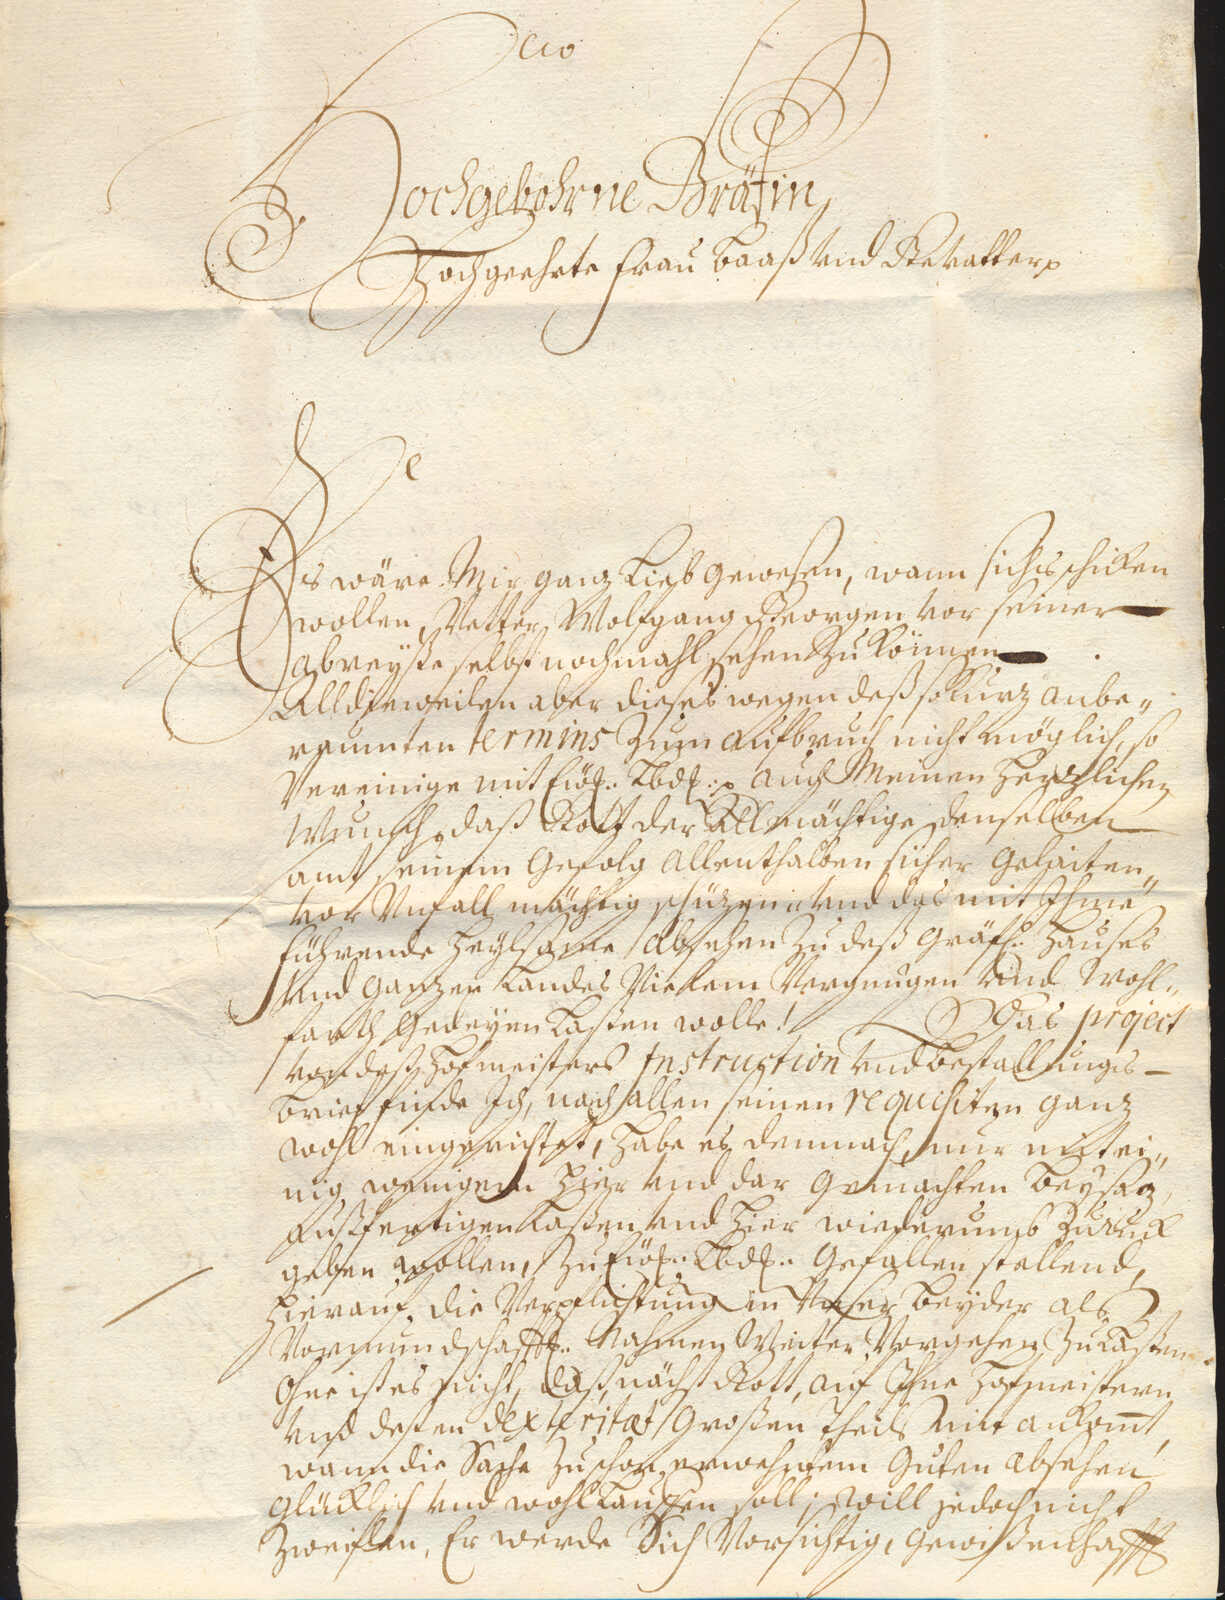 Hochgebohrne Gräfin,
Hochgeehrte Frau Baaß und Gevatter p
Es wäre Mir ganz Lieb gewesen, wann sichs schicken
wollen, Vetter Wolfgang Georgen vor seiner
abreyße selbst nochmahl sehen zu können
Alldieweilen aber dieses wegen deß so kurz anbe-
raumten termins zum aufbruch nicht möglich, so
Vereinige mit Eurer Lbd. auch Meinen herzlichen
Wunsch, daß Gott der Allmächtige denselben
samt seinem Gefolg allenthalben sicher geleiten,
vor Unfall mächtig schüzen, und das mit Ihme
führende heylsame absehen zu deß Gräfl. Hauses
und ganzen Landes Vielem Vergnügen und Wohl-
farth gedeyen laßen wolle! Das project
von deß Hofmeisters Instruction und bestallungs-
brief finde Ich, nach allen seinen requisiten ganz
wohl eingerichtet, habe es demnach, nur mit ei-
nig wenigem hier und dar gemachten beysaz,
außfertigen laßen und hier wiederumb zuruck
geben wollen, zu Eurer Lbd. Gefallen stellend,
hierauf die Verpflichtung in Unser beyder als
Vormundschafftl. Nahmen Weiter Vorgehen zu laßen.
Ohne ist es nicht, daß, nächst Gott, auf Ihne Hofmeistern
und deßen dexteritæt Großen theils mit ankommt,
wann die Sache zu schon erwehntem Guten absehen
glücklich und wohl lauffen soll; will jedoch nicht
zweiflen, Er werde Sich Vorsichtig, gewißenhafft